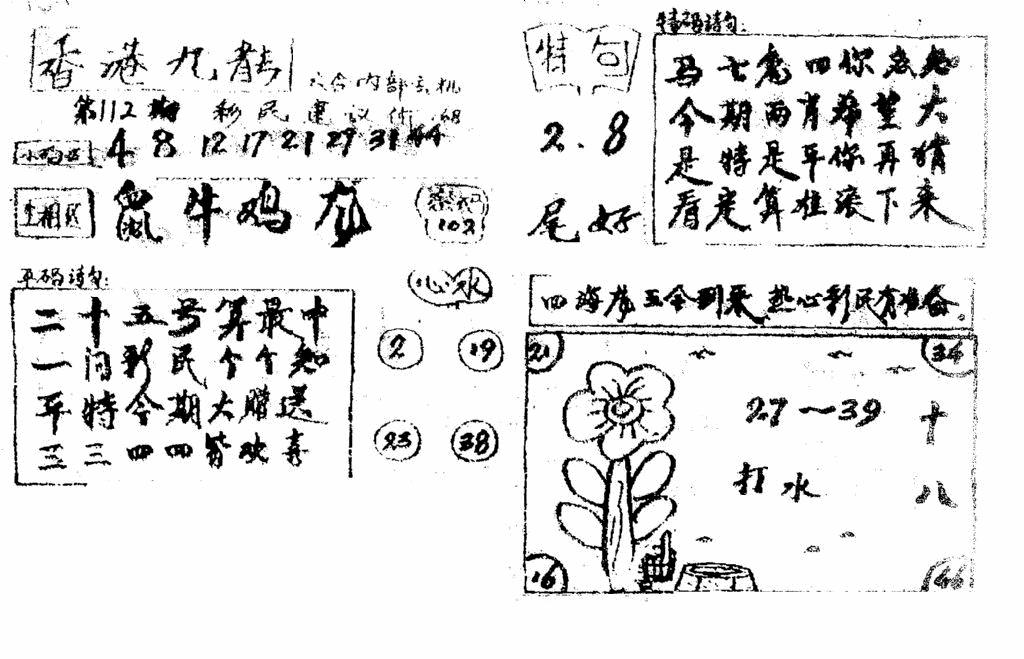 香港九龍
六合内部玄机
第112期 彩民建议价.68
4 8 12 17 21 29 31 44
鼠牛鸡龙
102
平码诗句:
二十五号算最中
一问彩民个个知
平特今期大赠送
三三四四皆欢喜
心水
2 19
23 38
特句
2.8
尾好
特码诗句:
马七兔四你
今期两肖希望大
是特是平你再猜
看定算准滚下来
四海 五令到来 热心彩民有准备。
21 34
27～39
打水
十八
16 46